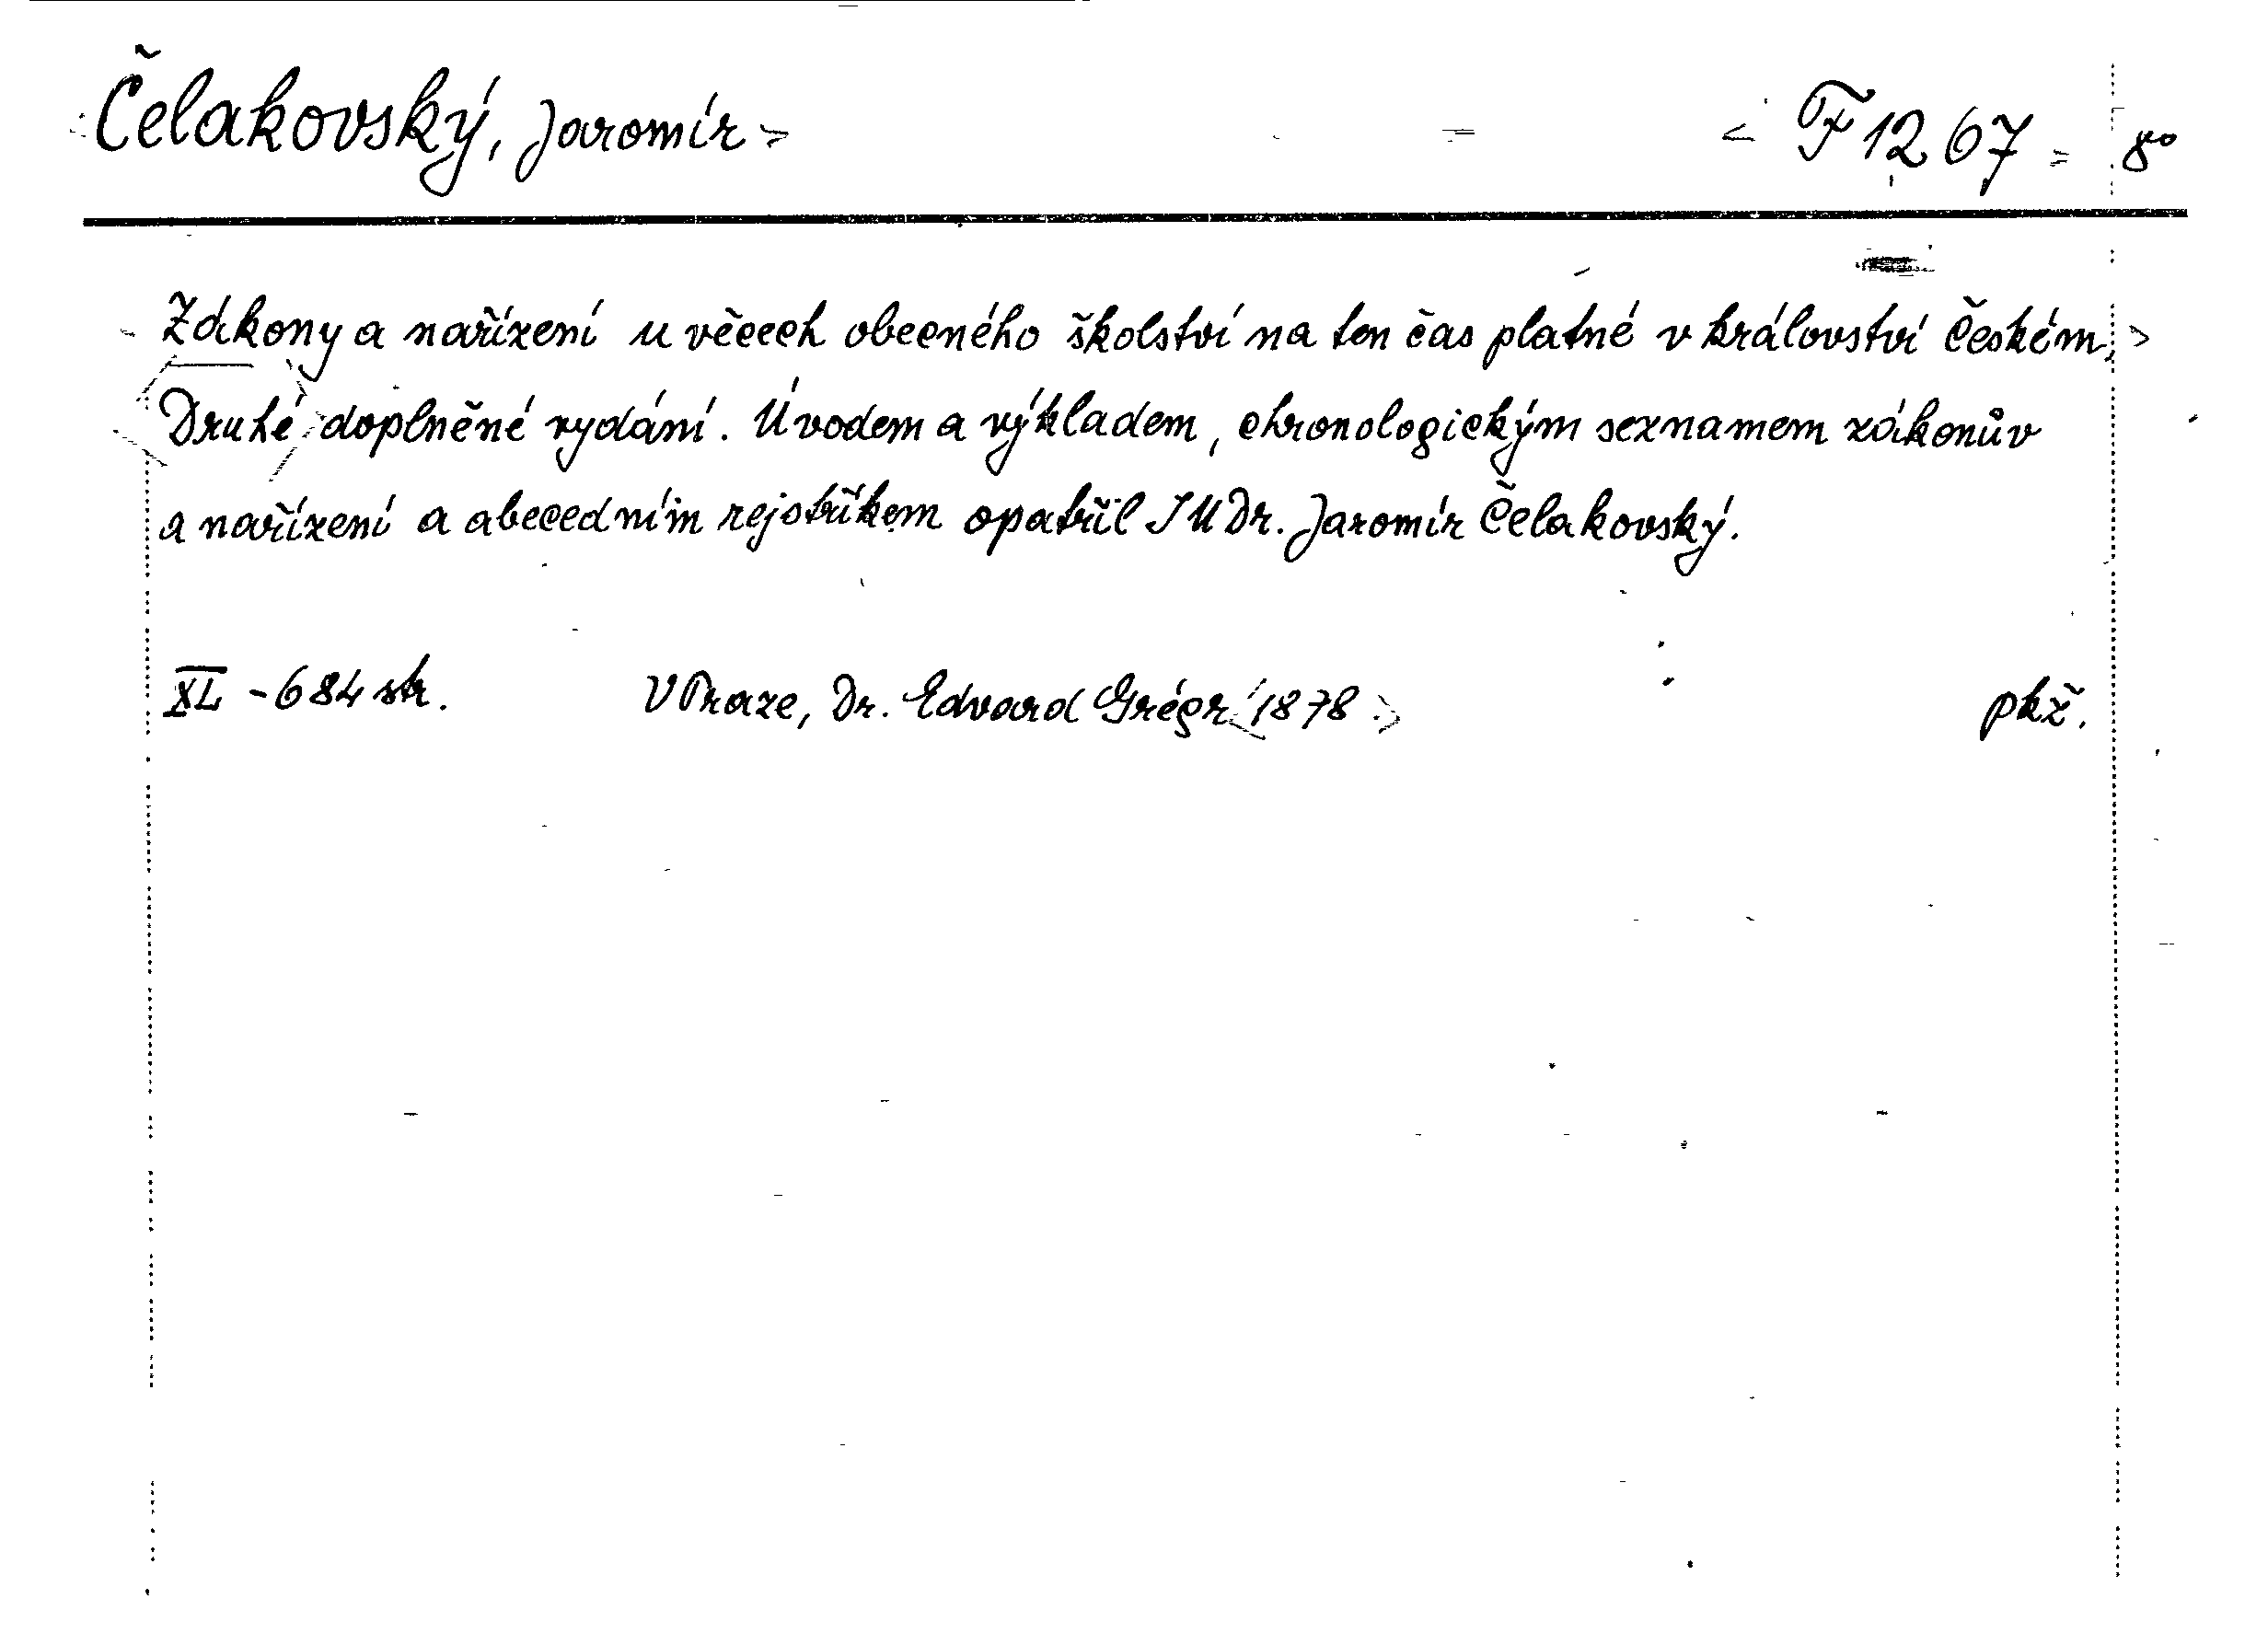 Čelakovský, Jaromír F 1267 8°
Zákony a nařízení u věcech obecného školství na ten čas platné v království Českém.
Druhé doplněné vydání. Úvodem a výkladem, chronologickým seznamem zákonův
a nařízení a abecedním rejstříkem opatřil JUDr. Jaromír Čelakovský.
XL - 684 str. V Praze, Dr. Edvard Grégr 1878 pkž.